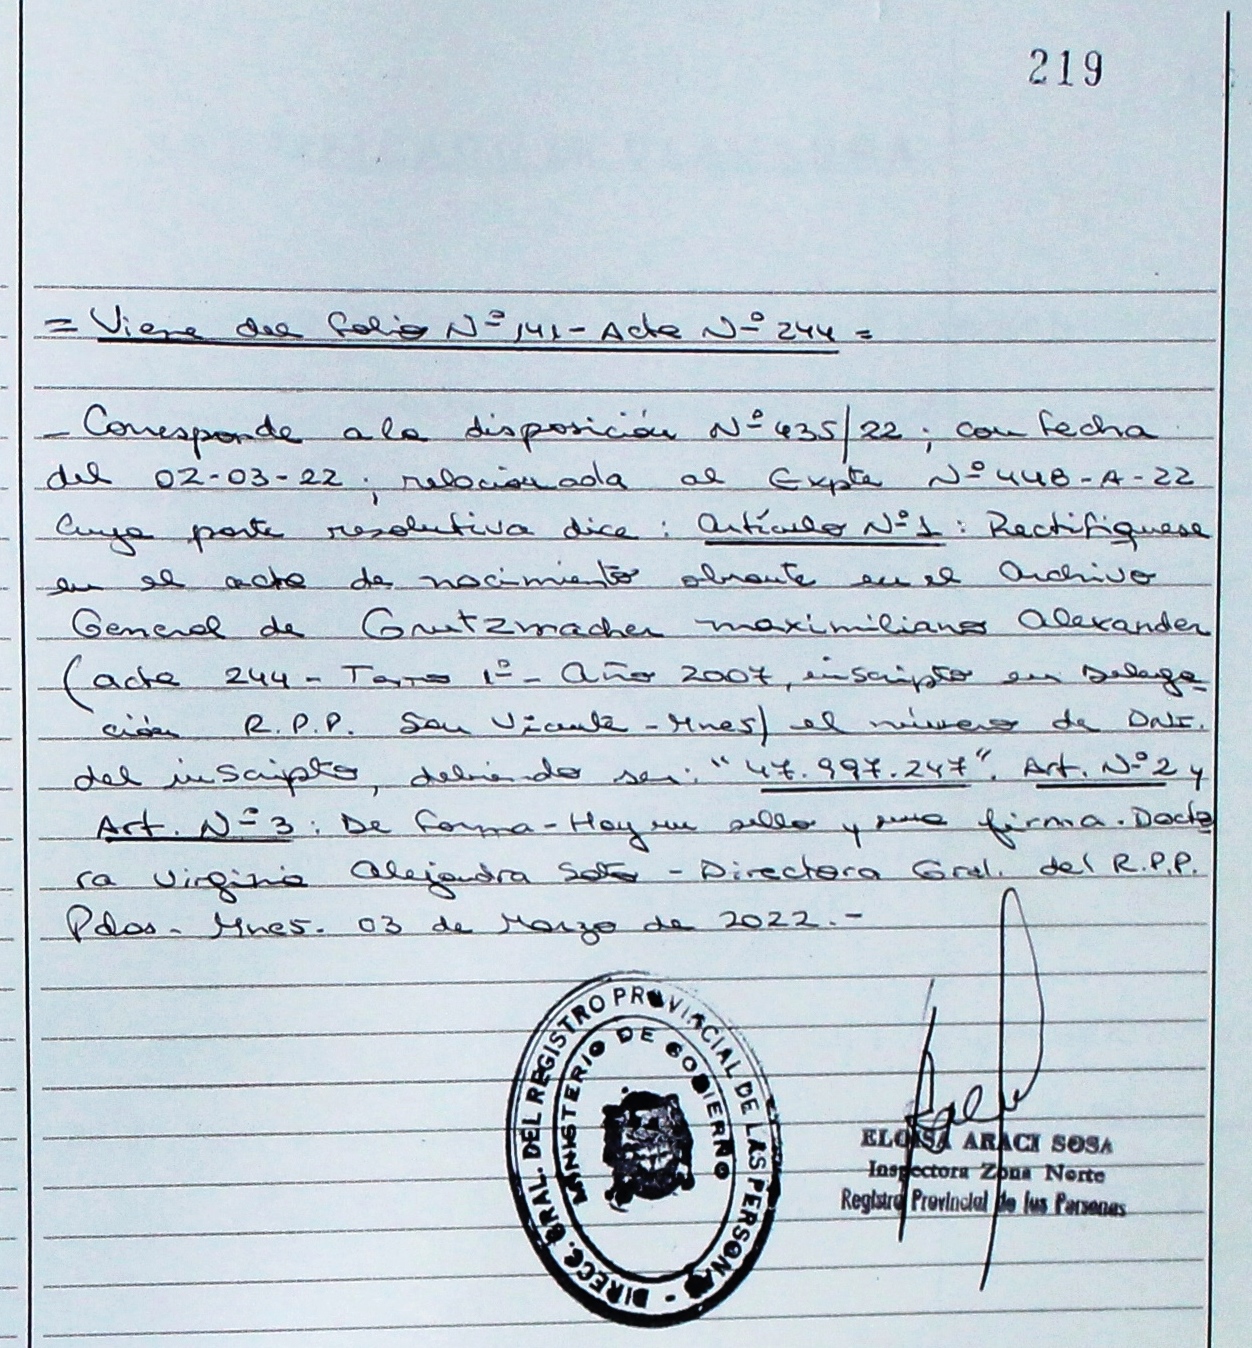 219
= Viene del folio Nº 141 - Acta Nº 244 =
- Corresponde a la disposición Nº 435/22; con fecha
del 02-03-22; relacionada al Expte Nº 448-A-22
Cuya parte resolutiva dice: Artículo Nº 1: Rectifiquese
en el acta de nacimiento obrante en el Archivo
General de Grutzmacher maximiliano Alexander
(acta 244 - Tomo 1º - Año 2007, inscripto en Delega-
ción R.P.P. San Vicente - Mnes) el número de DNI.
del inscripto, debiendo ser: "47.997.247". Art. Nº 2 y
Art. Nº 3: De forma - Hay un sello y una firma. Docto
ra Virginia Alejandra Soto - Directora Gral. del R.P.P.
Pdas - Mnes. 03 de Marzo de 2022.-
DIRECC. GRAL. DEL REGISTRO PROVINCIAL DE LAS PERSONAS -
MINISTERIO DE GOBIERNO
ELOISA ARACI SOSA
Inspectora Zona Norte
Registro Provincial de las Personas